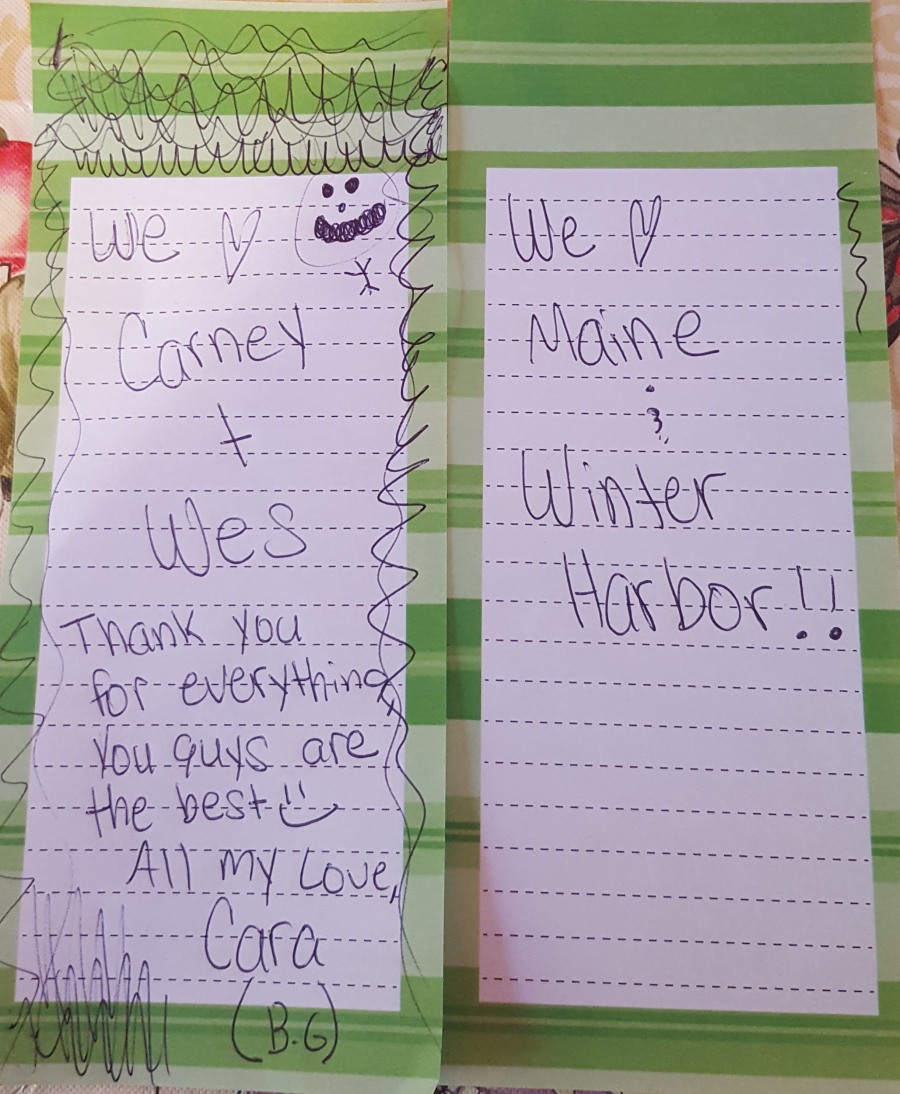 We ♡
Carney
+
Wes
Thank you
for everything
you guys are
the best
All my Love,
Cara
(B.G)
We ♡
Maine
&
Winter
Harbor!!